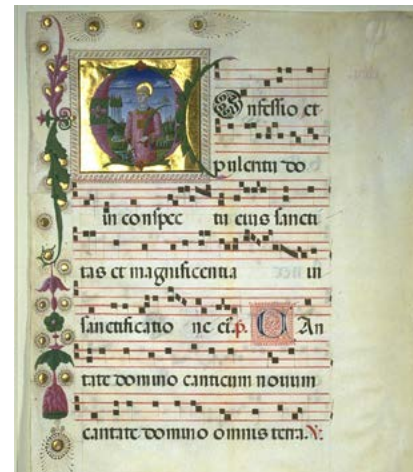 COnfessio et
pulcritu do
in conspec tu eius sancti
tas et magnificentia in
sanctificatio ne p. CAn
tate domino canticum novum
cantate domino omnis terra. V.